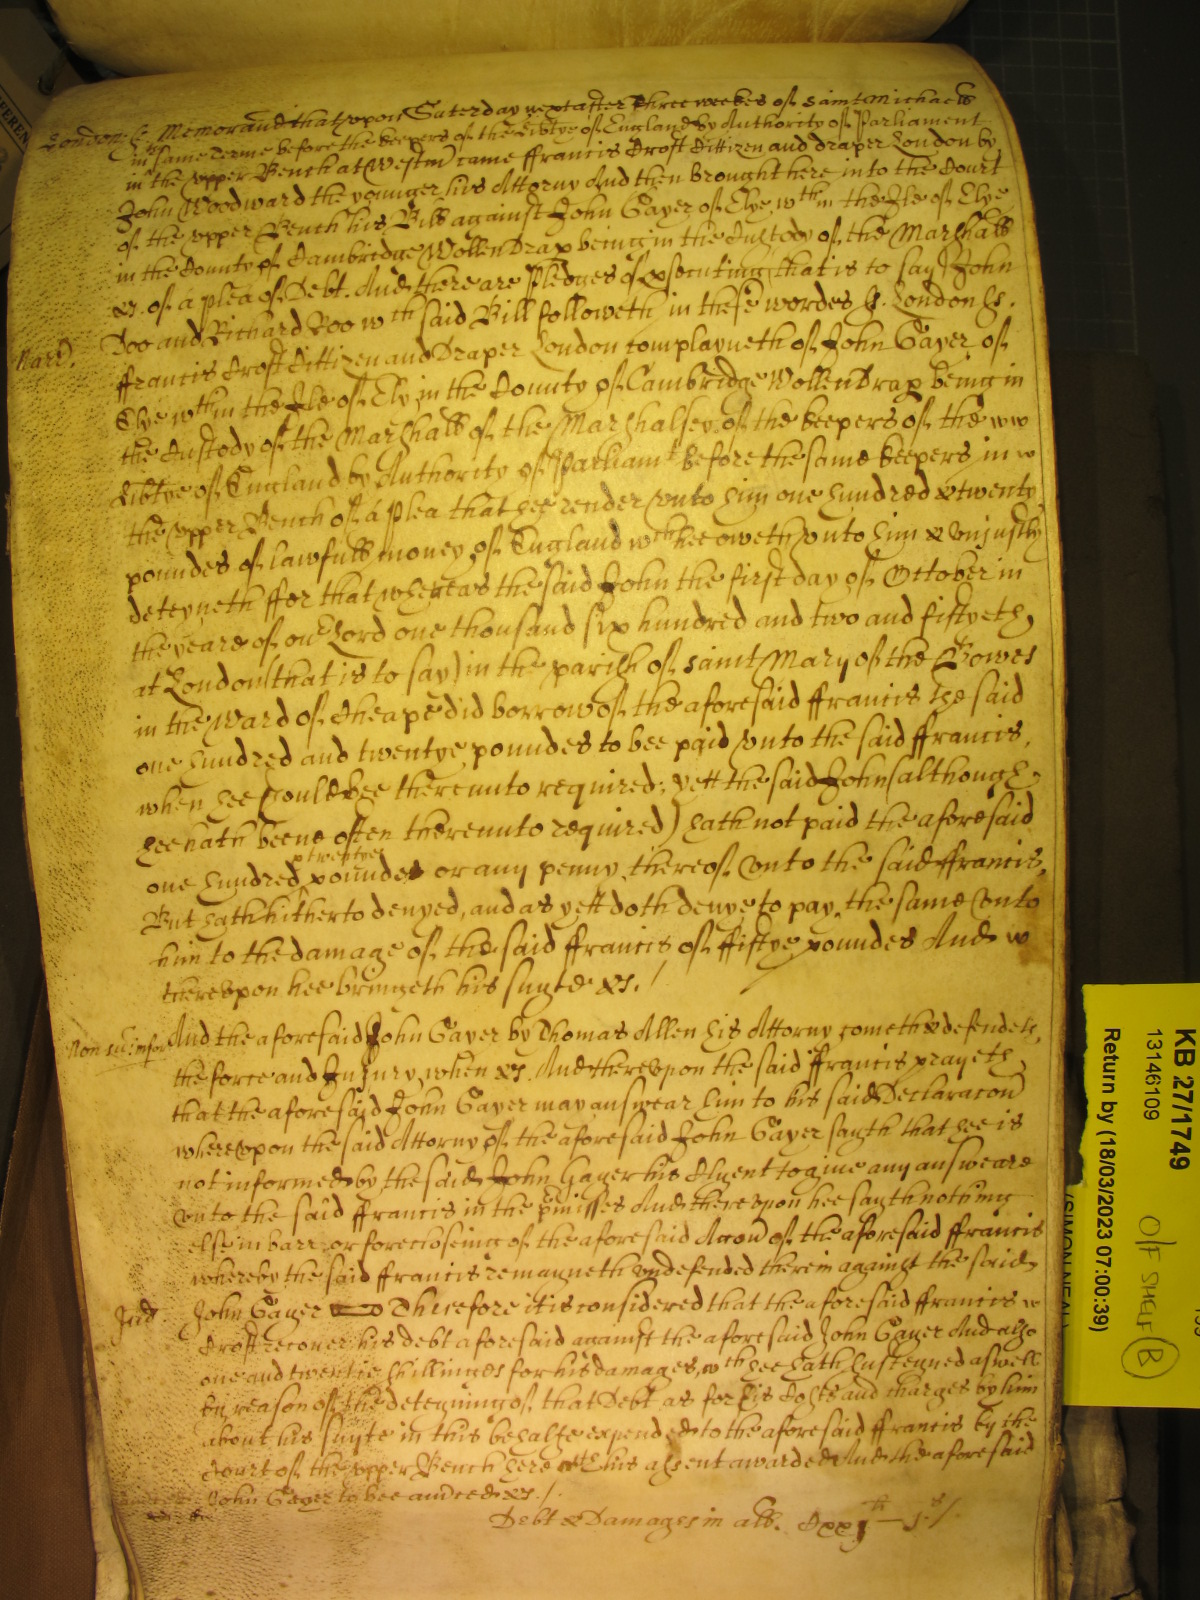 London ss. Memorand that upon Saterday next after Three weekes of saint Michaels
in same Terme before the keepers of the Libtye of England by Authority of Parliament
in the upper Bench at Westm came ffrancis Crost Cittizen and draper London by
John Woodward the younger his Attorny And then brought here into the Court
of the upper Bench his Bill against John Gayer of Elye wthin the Ile of Elye
in the County of Cambridge Wollen Drap being in the Custody of the Marshall
&c. of a plea of Debt. And there are Pledges of p'secuting (that is to say) John
Doo and Richard Roo wch said Bill followeth in these wordes ss. London ss.
ffrancis Crost Cittizen and Draper London complayneth of John Gayer of
Elye wthin the Ile of Ely in the County of Cambridge Wollen Drap being in
the Custody of the Marshall of the Marshalsey of the keepers of the
Libtye of England by Authority of Parliamt before the same keepers in
the upper Bench of a plea that hee render unto him one hundred & twenty
poundes of lawfull money of England wch hee oweth unto him & unjustly
deteyneth ffor that whereas the said John the first day of October in
the yeare of our Lord one thousand six hundred and two and fiftyeth
at London (that is to say) in the parish of saint Mary of the Bowes
in the Ward of Cheape did borrow of the aforesaid ffrancis the said
one hundred and twentye poundes to bee paid unto the said ffrancis,
when hee should bee thereunto required; yett the said John (although
hee hath beene often thereunto required) hath not paid the aforesaid
& twentye
one hundred poundes or any penny thereof unto the said ffrancis,
But hath hitherto denyed, and as yett doth denye to pay the same unto
him to the damage of the said ffrancis of fiftye poundes And
thereupon hee bringeth his suyte &c. /
Non su: infor And the aforesaid John Gayer by Thomas Allen his Attorny cometh & defendeth
the force and Injury when &c. And thereupon the said ffrancis prayeth
that the aforesaid John Gayer may answear him to his said Declaracon
whereupon the said Attorny of the aforesaid John Gayer sayth that hee is
not informed by the said John Gayer his Clyent to give any answeare
unto the said ffrancis in the pmisses And thereupon hee sayth nothing
else in barr or forecloseing of the aforesaid Accon of the aforesaid ffrancis
whereby the said ffrancis remayneth undefended therein against the said
Jud John Gayer Therefore it is considered that the aforesaid ffrancis
Crost recover his debt aforesaid against the aforesaid John Gayer And also
one and twentie shillinges for his damages wch hee hath susteyned aswell
by reason of the deteyning of that Debt as for his Costs and charges by him
about his suyte in this behalfe expended to the aforesaid ffrancis by the
Court of the upper Bench here wth his assent awarded And the aforesaid
John Gayer to bee amerced &c. /.
Debt & Damages in all. Cxxjli js /
KB 27/1749
13146109
Return by (18/03/2023 07:00:39)
(SIMON NEAL)
O/F SHELF B